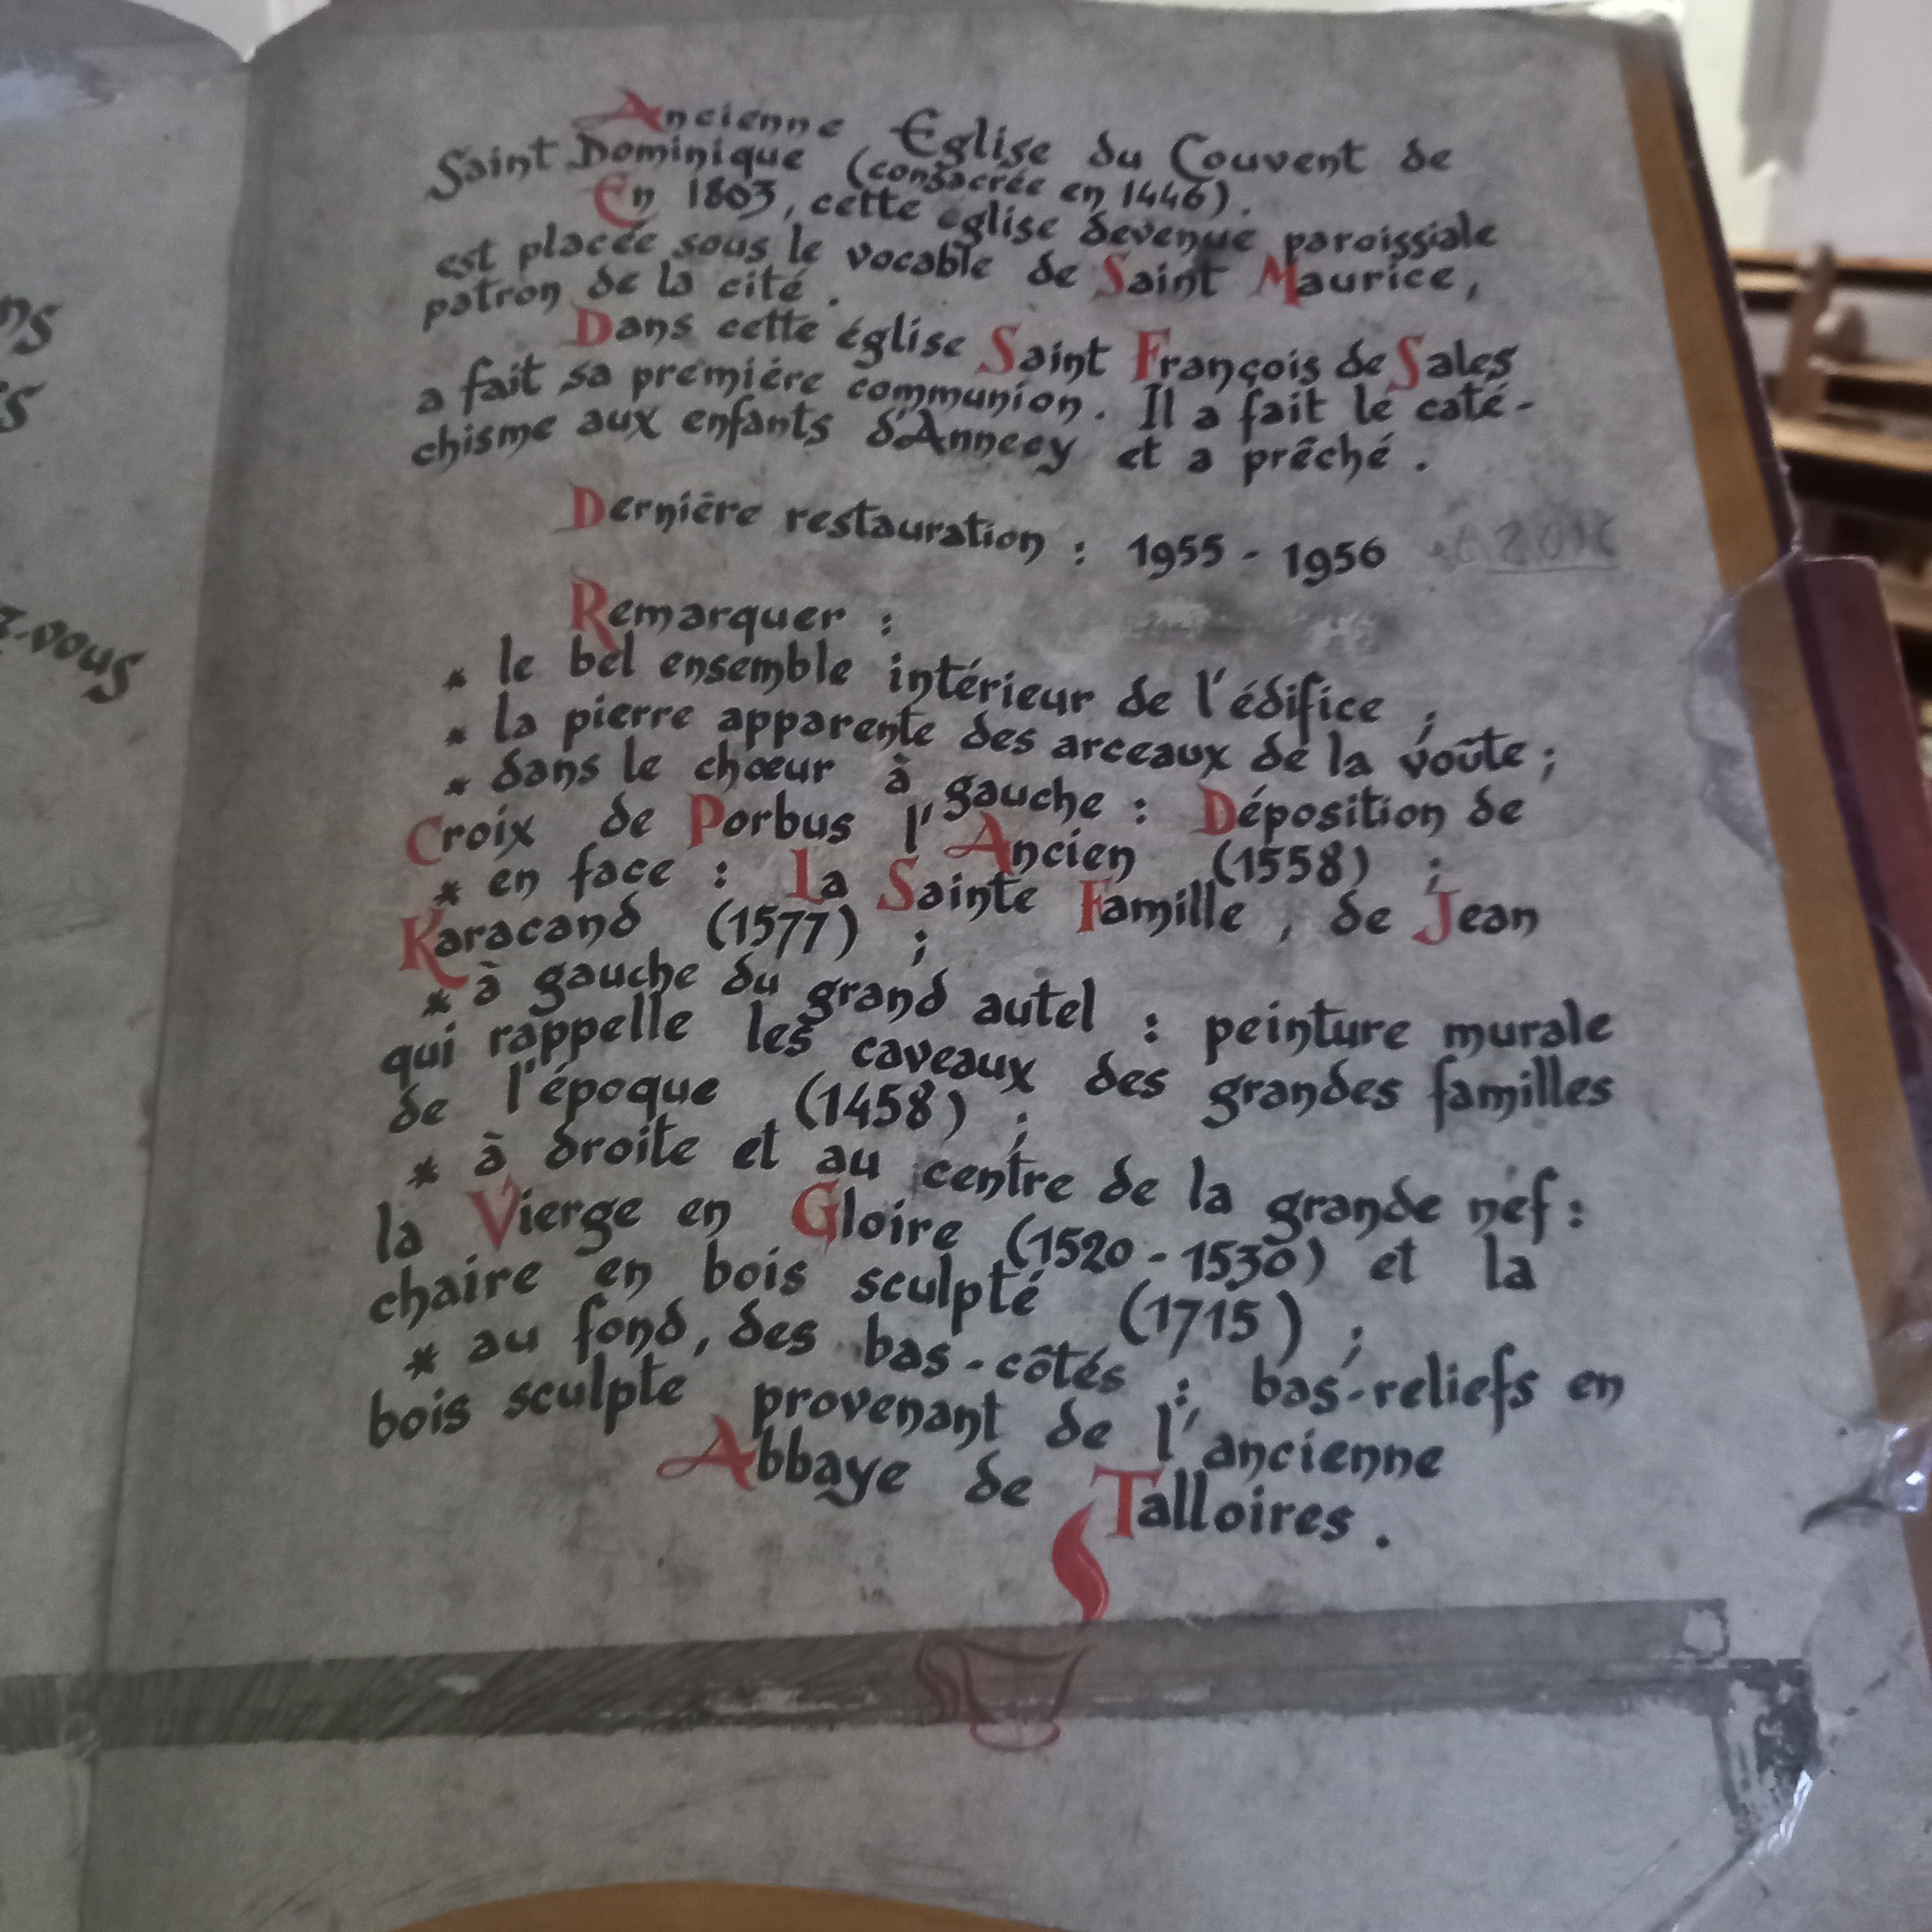 ns
s
z-vous
Ancienne Eglise du Couvent de
Saint Dominique (consacrée en 1446).
En 1803, cette église devenue paroissiale
est placée sous le vocable de Saint Maurice,
patron de la cité.
Dans cette église Saint François de Sales
a fait sa première communion. Il a fait le caté-
chisme aux enfants d'Annecy et a prêché.
Dernière restauration : 1955 - 1956
Remarquer :
* le bel ensemble intérieur de l'édifice ;
* la pierre apparente des arceaux de la voûte ;
* dans le chœur à gauche : Déposition de
Croix de Porbus l'Ancien (1558) ;
* en face : La Sainte Famille, de Jean
Karacand (1577) ;
* à gauche du grand autel : peinture murale
qui rappelle les caveaux des grandes familles
de l'époque (1458) ;
* à droite et au centre de la grande nef :
la Vierge en Gloire (1520 - 1530) et la
chaire en bois sculpté (1715) ;
* au fond, des bas-côtés : bas-reliefs en
bois sculpté provenant de l'ancienne
Abbaye de Talloires.